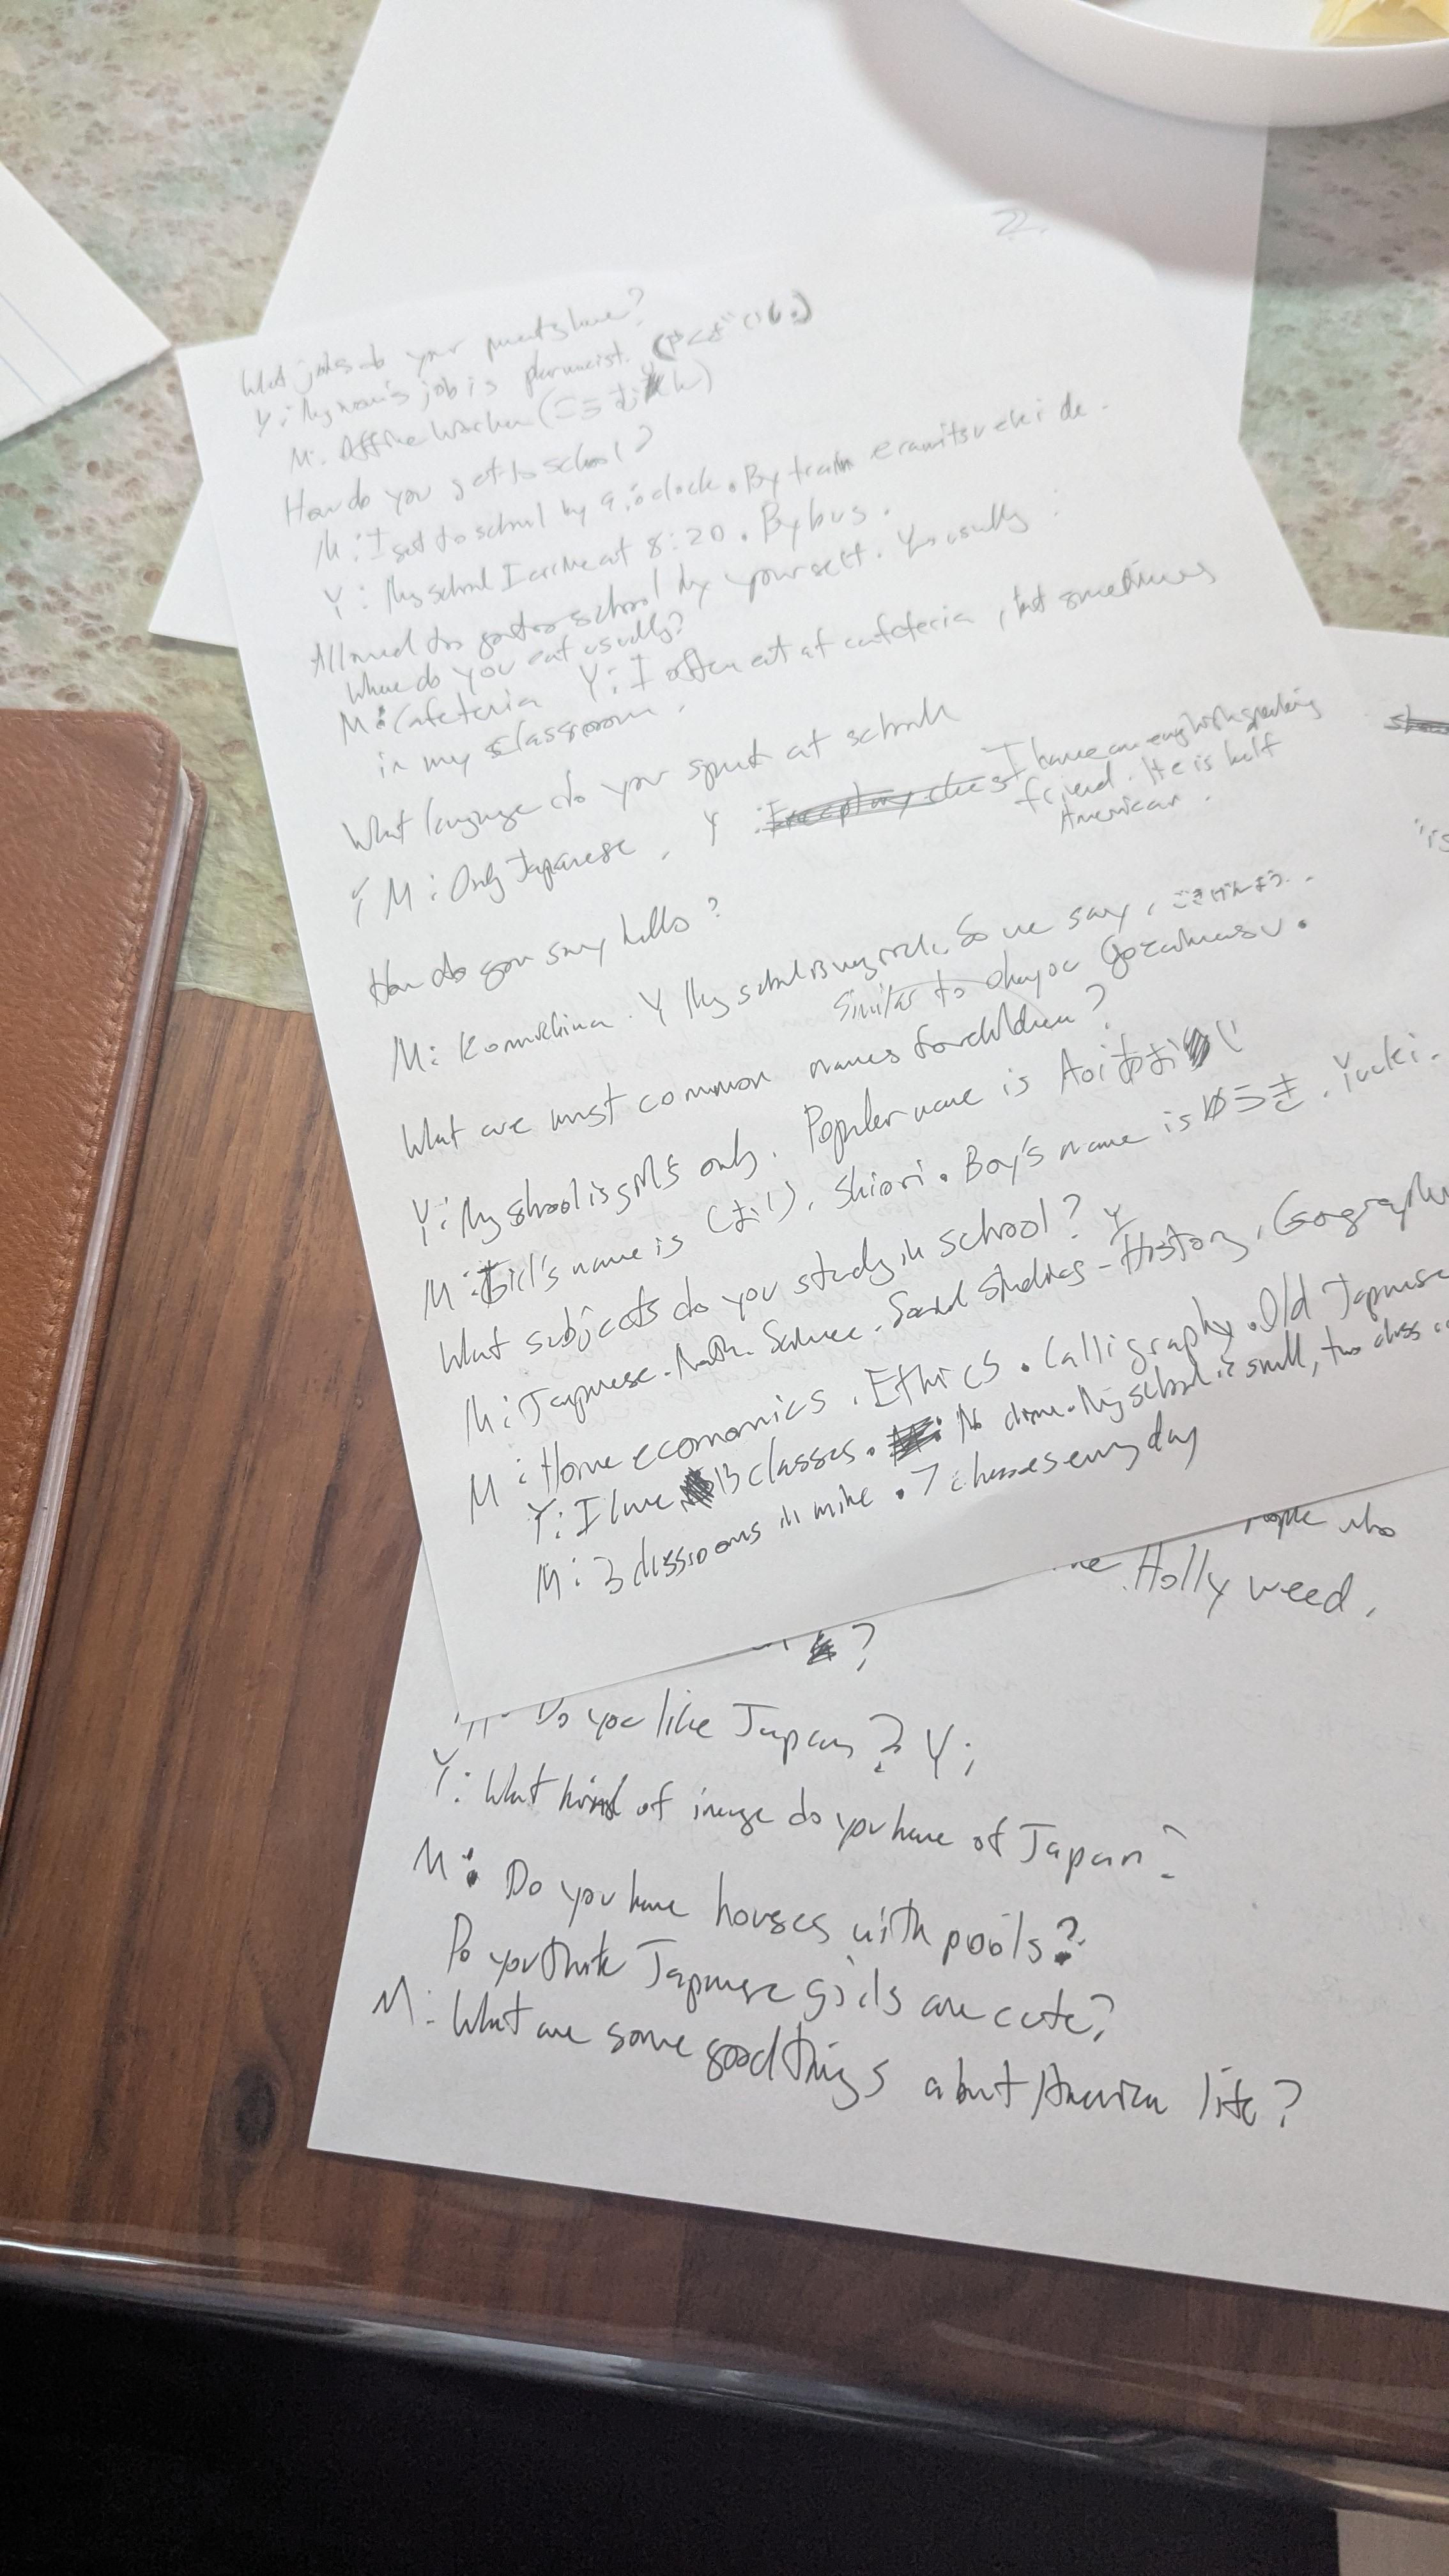 2.
What jobs do your parents have?
Y: My mom's job is pharmacist.
M: Office worker
How do you get to school?
M: I get to school by 9 o'clock. By train
Y: My school I arrive at 8:20. By bus.
Allowed to go to school by yourself. Yes usually
Where do you eat usually?
M: Cafeteria Y: I often eat at cafeteria, but sometimes
in my classroom.
What language do you speak at school
Y M: Only Japanese, Y I have an english speaking
friend. He is half
American.
How do you say hello?
M: Konnichiwa. Y My school is very So we say, ごきげんよう.
Similar to ohayou Gozaimasu.
What are most common names for children?
Y: My school is girls only. Popular name is Aoi
M: Girl's name is Shiori. Boy's name is ゆうき. Yuuki.
What subjects do you study in school? Y
M: Japanese. Math. Science. Social Studies - History, Geography
M: Home economics. Ethics. Calligraphy. Old Japanese
Y: I have 13 classes. My school is small, two class
M: 3 classrooms in mine. 7 classes every day
who
Holly weed.
?
Do you like Japan? Y;
Y: What kind of image do you have of Japan?
M: Do you have houses with pools?
Do you think Japanese girls are cute?
M: What are some good things about America life?